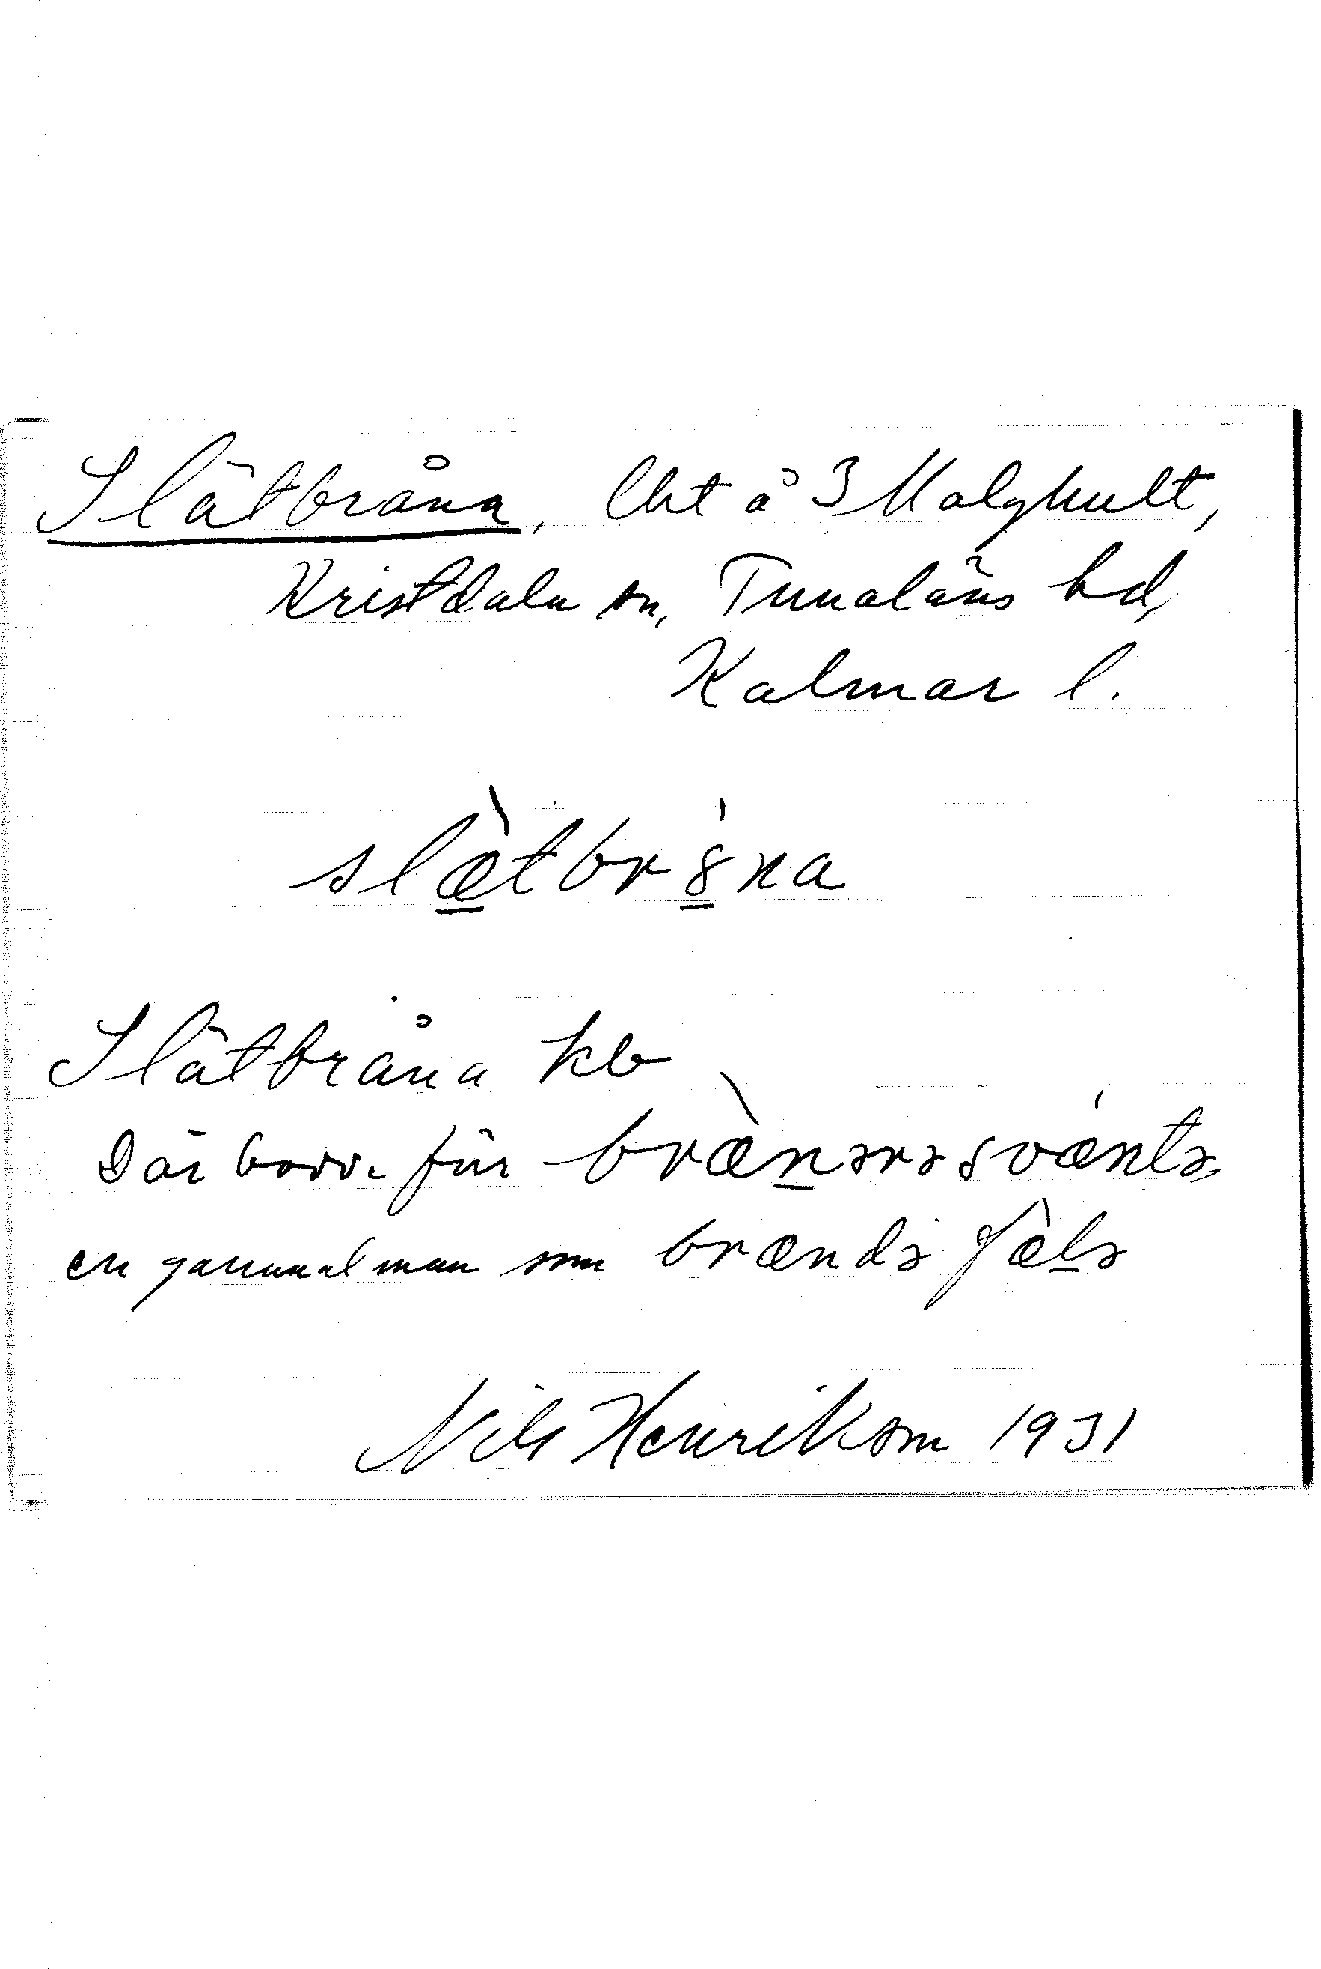 Slätbråna, lht å 3 Malghult,
Kristdala sn, Tunaläns hd,
Kalmar l.
slæ̀tbr8́na
Slätbråna kb
Där bodde förr bræ̀nərəsvǽntə,
en gammal man som brændə fæ̀lə
Nils Henrikson 1931